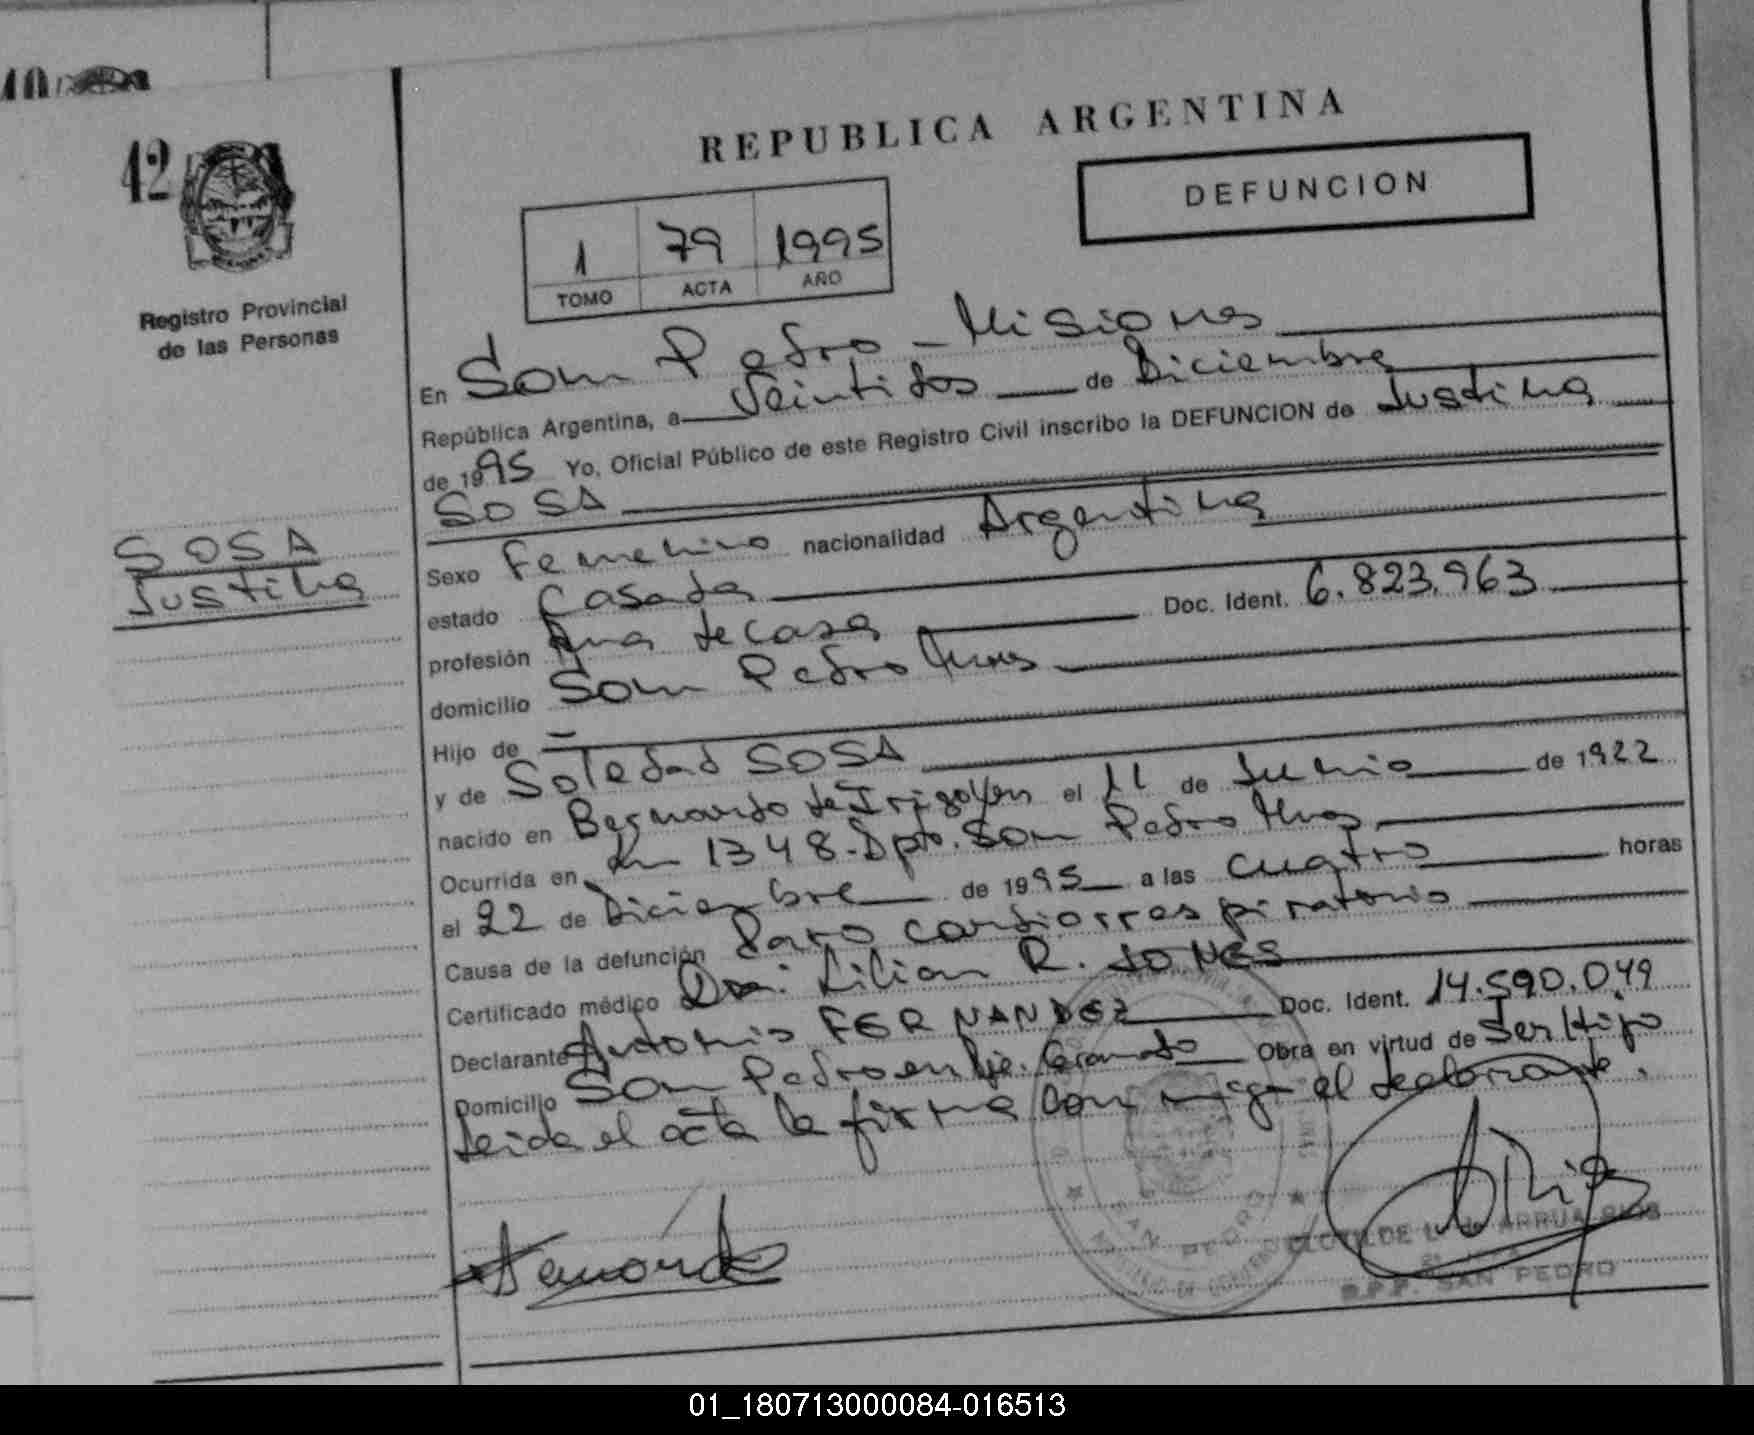 42
REPUBLICA ARGENTINA
DEFUNCION
1 79 1995
TOMO ACTA AÑO
Registro Provincial
de las Personas
SOSA
Justina
En San Pedro - Misiones
República Argentina, a Veintidos de Diciembre
de 1995 Yo, Oficial Público de este Registro Civil inscribo la DEFUNCION de Justina
SOSA
Sexo Femenino nacionalidad Argentina
estado Casada
profesión Ama de casa Doc. Ident. 6.823.963
domicilio San Pedro Mnes
Hijo de —
y de Soledad SOSA
nacido en Bernardo de Irigoyen el 11 de Junio de 1922
Ocurrida en Km 1348-Dpto. San Pedro Mnes
el 22 de Diciembre de 1995 a las cuatro horas
Causa de la defunción Paro cardiorrespiratorio
Certificado médico Dra. Lilian R. JONES
Declarante Antonio FERNANDEZ Doc. Ident. 14.590.049
Domicilio San Pedro en Gramado Obra en virtud de Ser Hijo
Leida el acta la firma con migo el declarante.
SAN PEDRO
CLOTILDE L. de ARRUA RIOS
R.P.P. SAN PEDRO
01_180713000084-016513